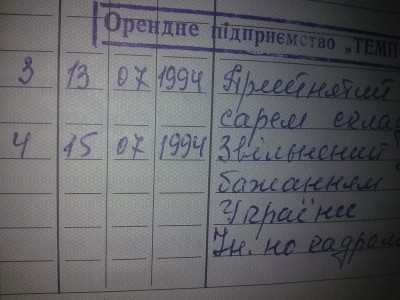 Орендне підприємство „ТЕМП
3 13 07 1994 Прийнятий
сарем склад
4 15 07 1994 Звільнений
бажанням
України
Ін. по кадрам